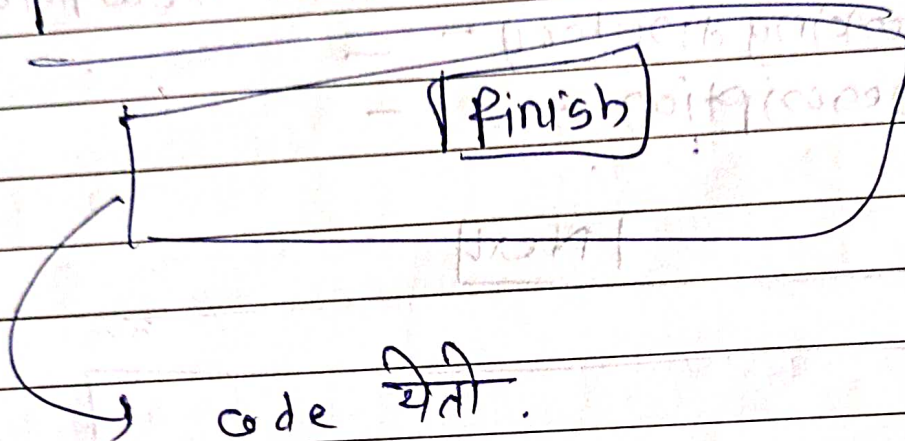 Finish
code येती.